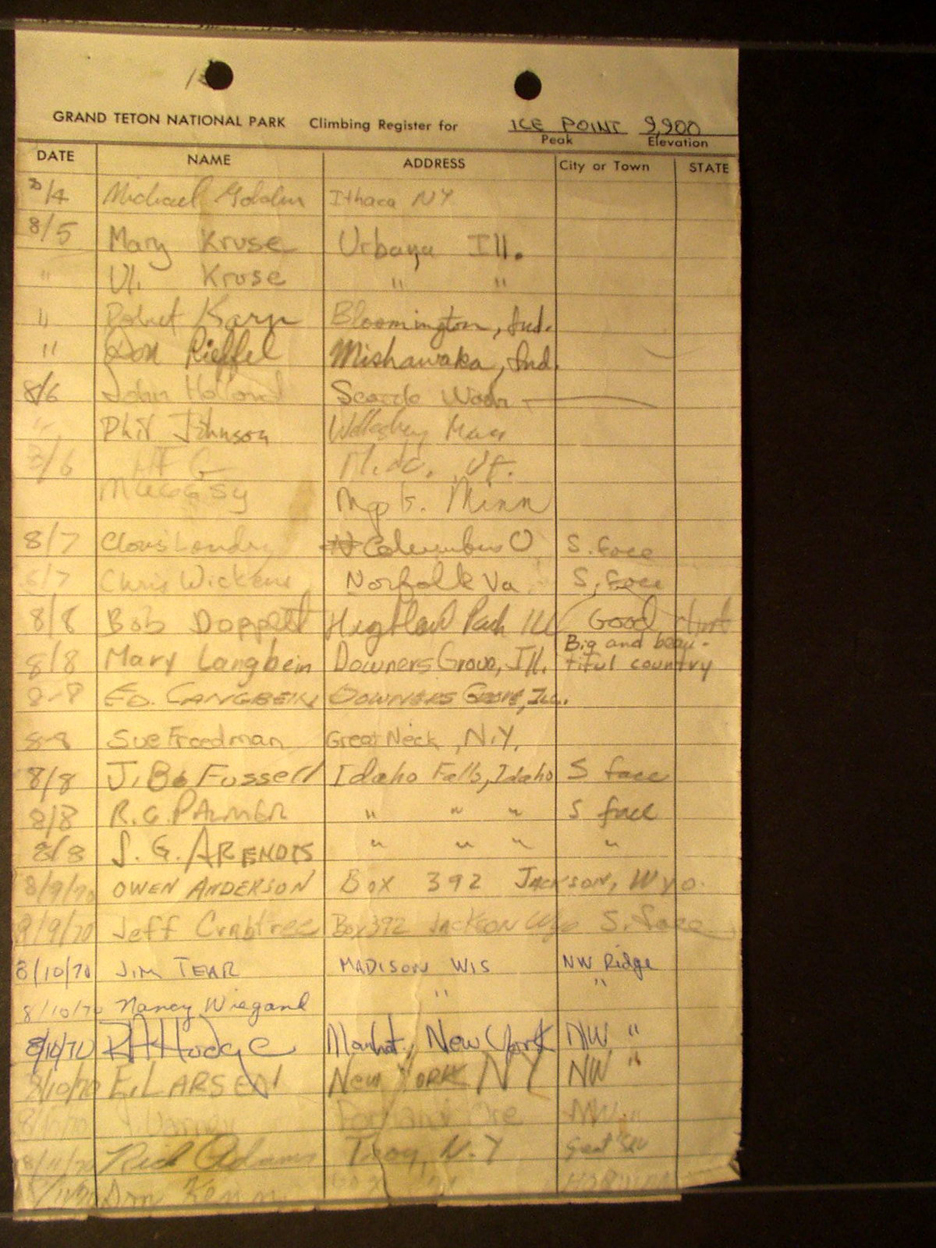 GRAND TETON NATIONAL PARK Climbing Register for ICE POINT 9,900
Peak Elevation
DATE NAME ADDRESS City or Town STATE
8/4 Michael Ithaca NY
8/5 Mary Kruse Urbana Ill.
" Kruse " "
" Robert Karp Bloomington, Ind.
" Don Rieffel Mishawaka, Ind.
8/6 John Holland
" Phil Johnson Mass
8/6
Muggsy Mpls. Minn
8/7 Landry Columbus O S. face
8/7 Chris Norfolk Va S. face
8/8 Bob Highland Park Ill Good
8/8 Mary Langbein Downers Grove, Ill. Big and beau-
tiful country
8-8 ED. LANGBEIN DOWNERS GROVE, ILL.
8-8 Sue Freedman Great Neck, N.Y.
8/8 J. B. Fussell Idaho Falls, Idaho S face
8/8 R.C. PALMER " " " S face
8/8 S. G. ARENDTS " " " "
8/9/70 OWEN ANDERSON Box 392 JACKSON, Wyo.
8/9/70 Jeff Crabtree Box 392 JACKSON Wyo S. face
8/10/70 JIM TEAR MADISON WIS NW Ridge
8/10/70 Nancy Wiegand " "
8/10/70 RA Hodge Manhat., New York NW "
8/10/70 E. LARSEN New YORK NY NW "
Portland Ore NW "
8/11/70 Rick Adams Troy, N.Y
Don